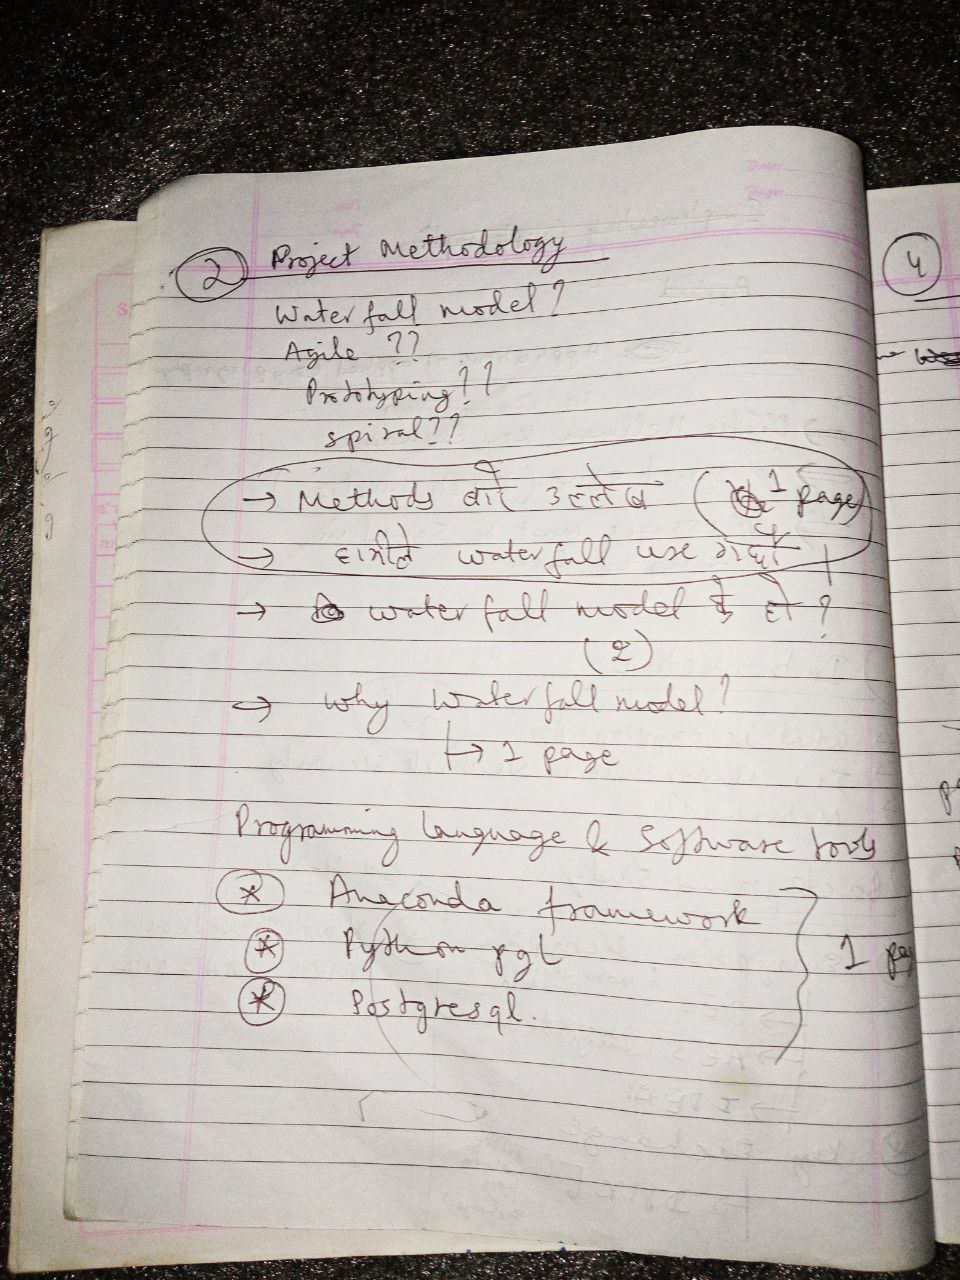 2 Project Methodology
Waterfall model?
Agile ??
Prototyping??
spiral??
→ Methods (1 page)
→ waterfall use
→ waterfall model ?
(2)
→ Why Waterfall model?
↳ 1 page
Programming language & Software tools
* Anaconda framework
* Python pgL
1
* Postgresql.
4